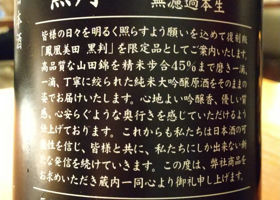 黒判
無濾過本生
日本酒
皆様の日々を明るく照らすよう願いを込めて復刻版
『鳳凰美田 黒判』を限定品としてご案内いたします。
高品質な山田錦を精米歩合45%まで磨き一滴、
一滴、丁寧に搾られた純米大吟醸原酒をそのままの
姿でお届けいたします。心地よい吟醸香、優しい質
感、心安らぐような奥行きを感じていただけるよう
仕上げております。これからも私たちは日本酒の可
能性を信じ、皆様と共に、私たちにしか出来ない新
たな発信を続けていきます。この度は、弊社商品を
お求めいただき蔵内一同心より御礼申し上げます。